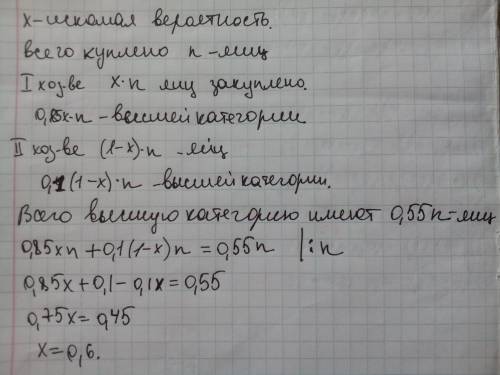 x-искомая вероятность.
всего куплено n-яиц
I хоз-ве x·n яиц закуплено.
0,85x·n - высшей категории
II хоз-ве (1-x)·n - яиц
0,1(1-x)·n - высшей категории.
Всего высшую категорию имеют 0,55n-яиц
0,85xn+0,1(1-x)n=0,55n |:n
0,85x+0,1-0,1x=0,55
0,75x=0,45
x=0,6.